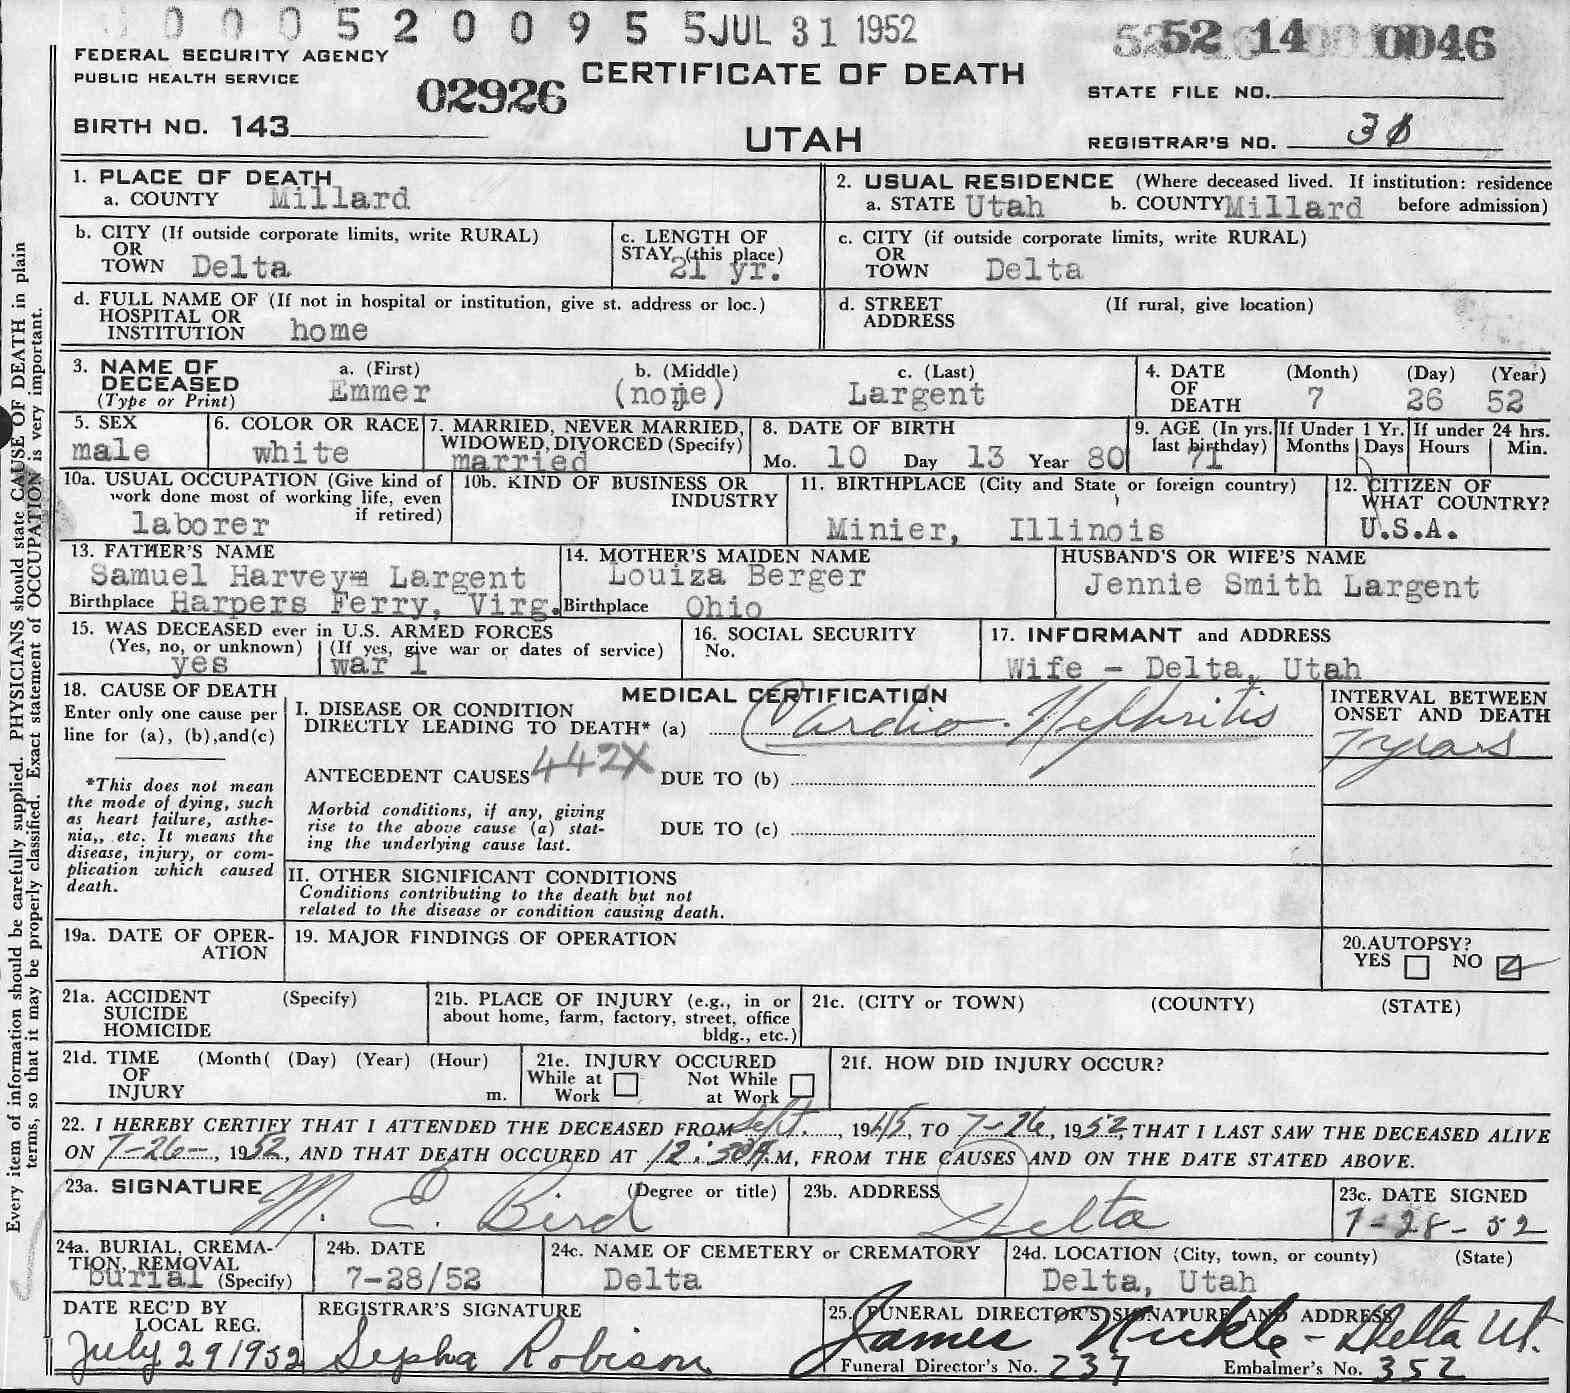 0 0 0 5 2 0 0 9 5 5 JUL 31 1952
52 14 0046
FEDERAL SECURITY AGENCY
PUBLIC HEALTH SERVICE
02926
CERTIFICATE OF DEATH
STATE FILE NO.
BIRTH NO. 143
UTAH
REGISTRAR'S NO.
1. PLACE OF DEATH
a. COUNTY Millard
2. USUAL RESIDENCE (Where deceased lived. If institution: residence
a. STATE Utah b. COUNTY Millard before admission)
b. CITY (If outside corporate limits, write RURAL)
OR
TOWN Delta
c. LENGTH OF
STAY (this place)
21 yr.
c. CITY (if outside corporate limits, write RURAL)
OR
TOWN Delta
d. FULL NAME OF (If not in hospital or institution, give st. address or loc.)
HOSPITAL OR
INSTITUTION home
d. STREET (If rural, give location)
ADDRESS
3. NAME OF
DECEASED
(Type or Print)
a. (First)
Emmer
b. (Middle)
(none)
c. (Last)
Largent
4. DATE
OF
DEATH
(Month) (Day) (Year)
7 26 52
5. SEX
male
6. COLOR OR RACE
white
7. MARRIED, NEVER MARRIED,
WIDOWED, DIVORCED (Specify)
married
8. DATE OF BIRTH
Mo. 10 Day 13 Year 80
9. AGE (In yrs.
last birthday)
71
If Under 1 Yr.
Months Days
If under 24 hrs.
Hours Min.
10a. USUAL OCCUPATION (Give kind of
work done most of working life, even
if retired)
laborer
10b. KIND OF BUSINESS OR
INDUSTRY
11. BIRTHPLACE (City and State or foreign country)
Minier, Illinois
12. CITIZEN OF
WHAT COUNTRY?
U.S.A.
13. FATHER'S NAME
Samuel Harvey Largent
Birthplace Harpers Ferry, Virg.
14. MOTHER'S MAIDEN NAME
Louiza Berger
Birthplace Ohio
HUSBAND'S OR WIFE'S NAME
Jennie Smith Largent
15. WAS DECEASED ever in U.S. ARMED FORCES
(Yes, no, or unknown) (If yes, give war or dates of service)
yes war 1
16. SOCIAL SECURITY
No.
17. INFORMANT and ADDRESS
Wife - Delta, Utah
18. CAUSE OF DEATH
Enter only one cause per
line for (a), (b),and(c)
*This does not mean
the mode of dying, such
as heart failure, asthe-
nia,, etc. It means the
disease, injury, or com-
plication which caused
death.
MEDICAL CERTIFICATION
I. DISEASE OR CONDITION
DIRECTLY LEADING TO DEATH* (a) Cardio-Nephritis
INTERVAL BETWEEN
ONSET AND DEATH
7 years
ANTECEDENT CAUSES 442X DUE TO (b)
Morbid conditions, if any, giving
rise to the above cause (a) stat-
ing the underlying cause last.
DUE TO (c)
II. OTHER SIGNIFICANT CONDITIONS
Conditions contributing to the death but not
related to the disease or condition causing death.
19a. DATE OF OPER-
ATION
19. MAJOR FINDINGS OF OPERATION
20. AUTOPSY?
YES NO
21a. ACCIDENT (Specify)
SUICIDE
HOMICIDE
21b. PLACE OF INJURY (e.g., in or
about home, farm, factory, street, office
bldg., etc.)
21c. (CITY or TOWN) (COUNTY) (STATE)
21d. TIME (Month( (Day) (Year) (Hour)
OF
INJURY m.
21e. INJURY OCCURED
While at Work Not While at Work
21f. HOW DID INJURY OCCUR?
22. I HEREBY CERTIFY THAT I ATTENDED THE DECEASED FROM Sept., 1945, TO 7-26, 1952, THAT I LAST SAW THE DECEASED ALIVE
ON 7-26-, 1952, AND THAT DEATH OCCURED AT 12:30A.M, FROM THE CAUSES AND ON THE DATE STATED ABOVE.
23a. SIGNATURE (Degree or title)
M. E. Bird
23b. ADDRESS
Delta
23c. DATE SIGNED
7-28-52
24a. BURIAL, CREMA-
TION, REMOVAL
burial (Specify)
24b. DATE
7-28/52
24c. NAME OF CEMETERY or CREMATORY
Delta
24d. LOCATION (City, town, or county) (State)
Delta, Utah
DATE REC'D BY
LOCAL REG.
July 29 1952
REGISTRAR'S SIGNATURE
Sepha Robison
25. FUNERAL DIRECTOR'S SIGNATURE AND ADDRESS
James Nickle - Delta Ut.
Funeral Director's No. 237 Embalmer's No. 352
Every item of information should be carefully supplied. PHYSICIANS should state CAUSE OF DEATH in plain
terms, so that it may be properly classified. Exact statement of OCCUPATION is very important.